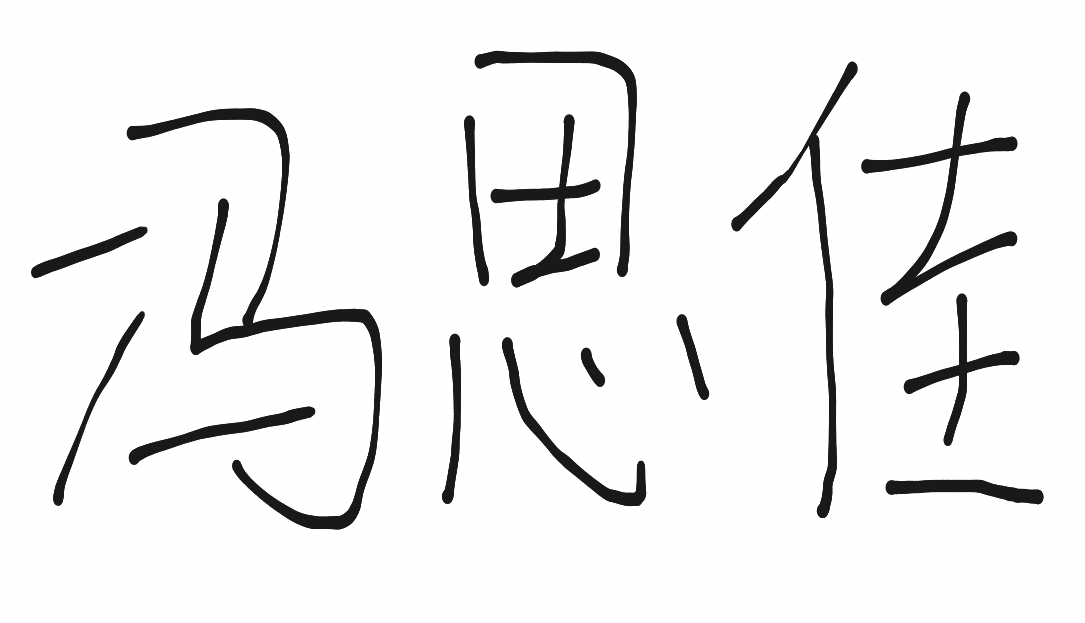 冯思佳